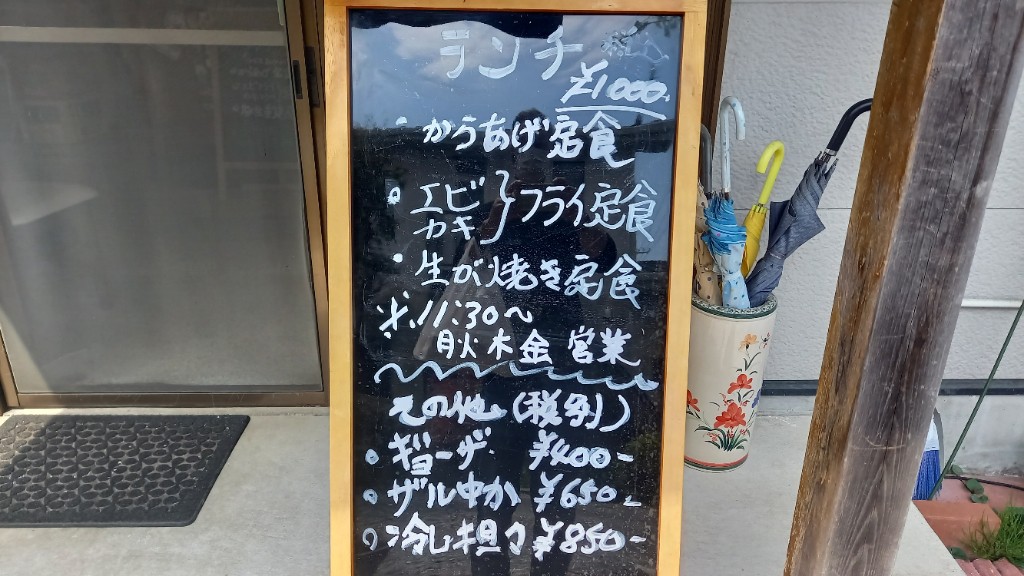 ランチ
¥1000.
・からあげ定食
・エビ
カキ}フライ定食
・生が焼き定食
※11:30～
月火木金 営業
その他(税別)
・ギョーザ ¥400-
・ザル中か ¥650-
・冷し担々 ¥850-